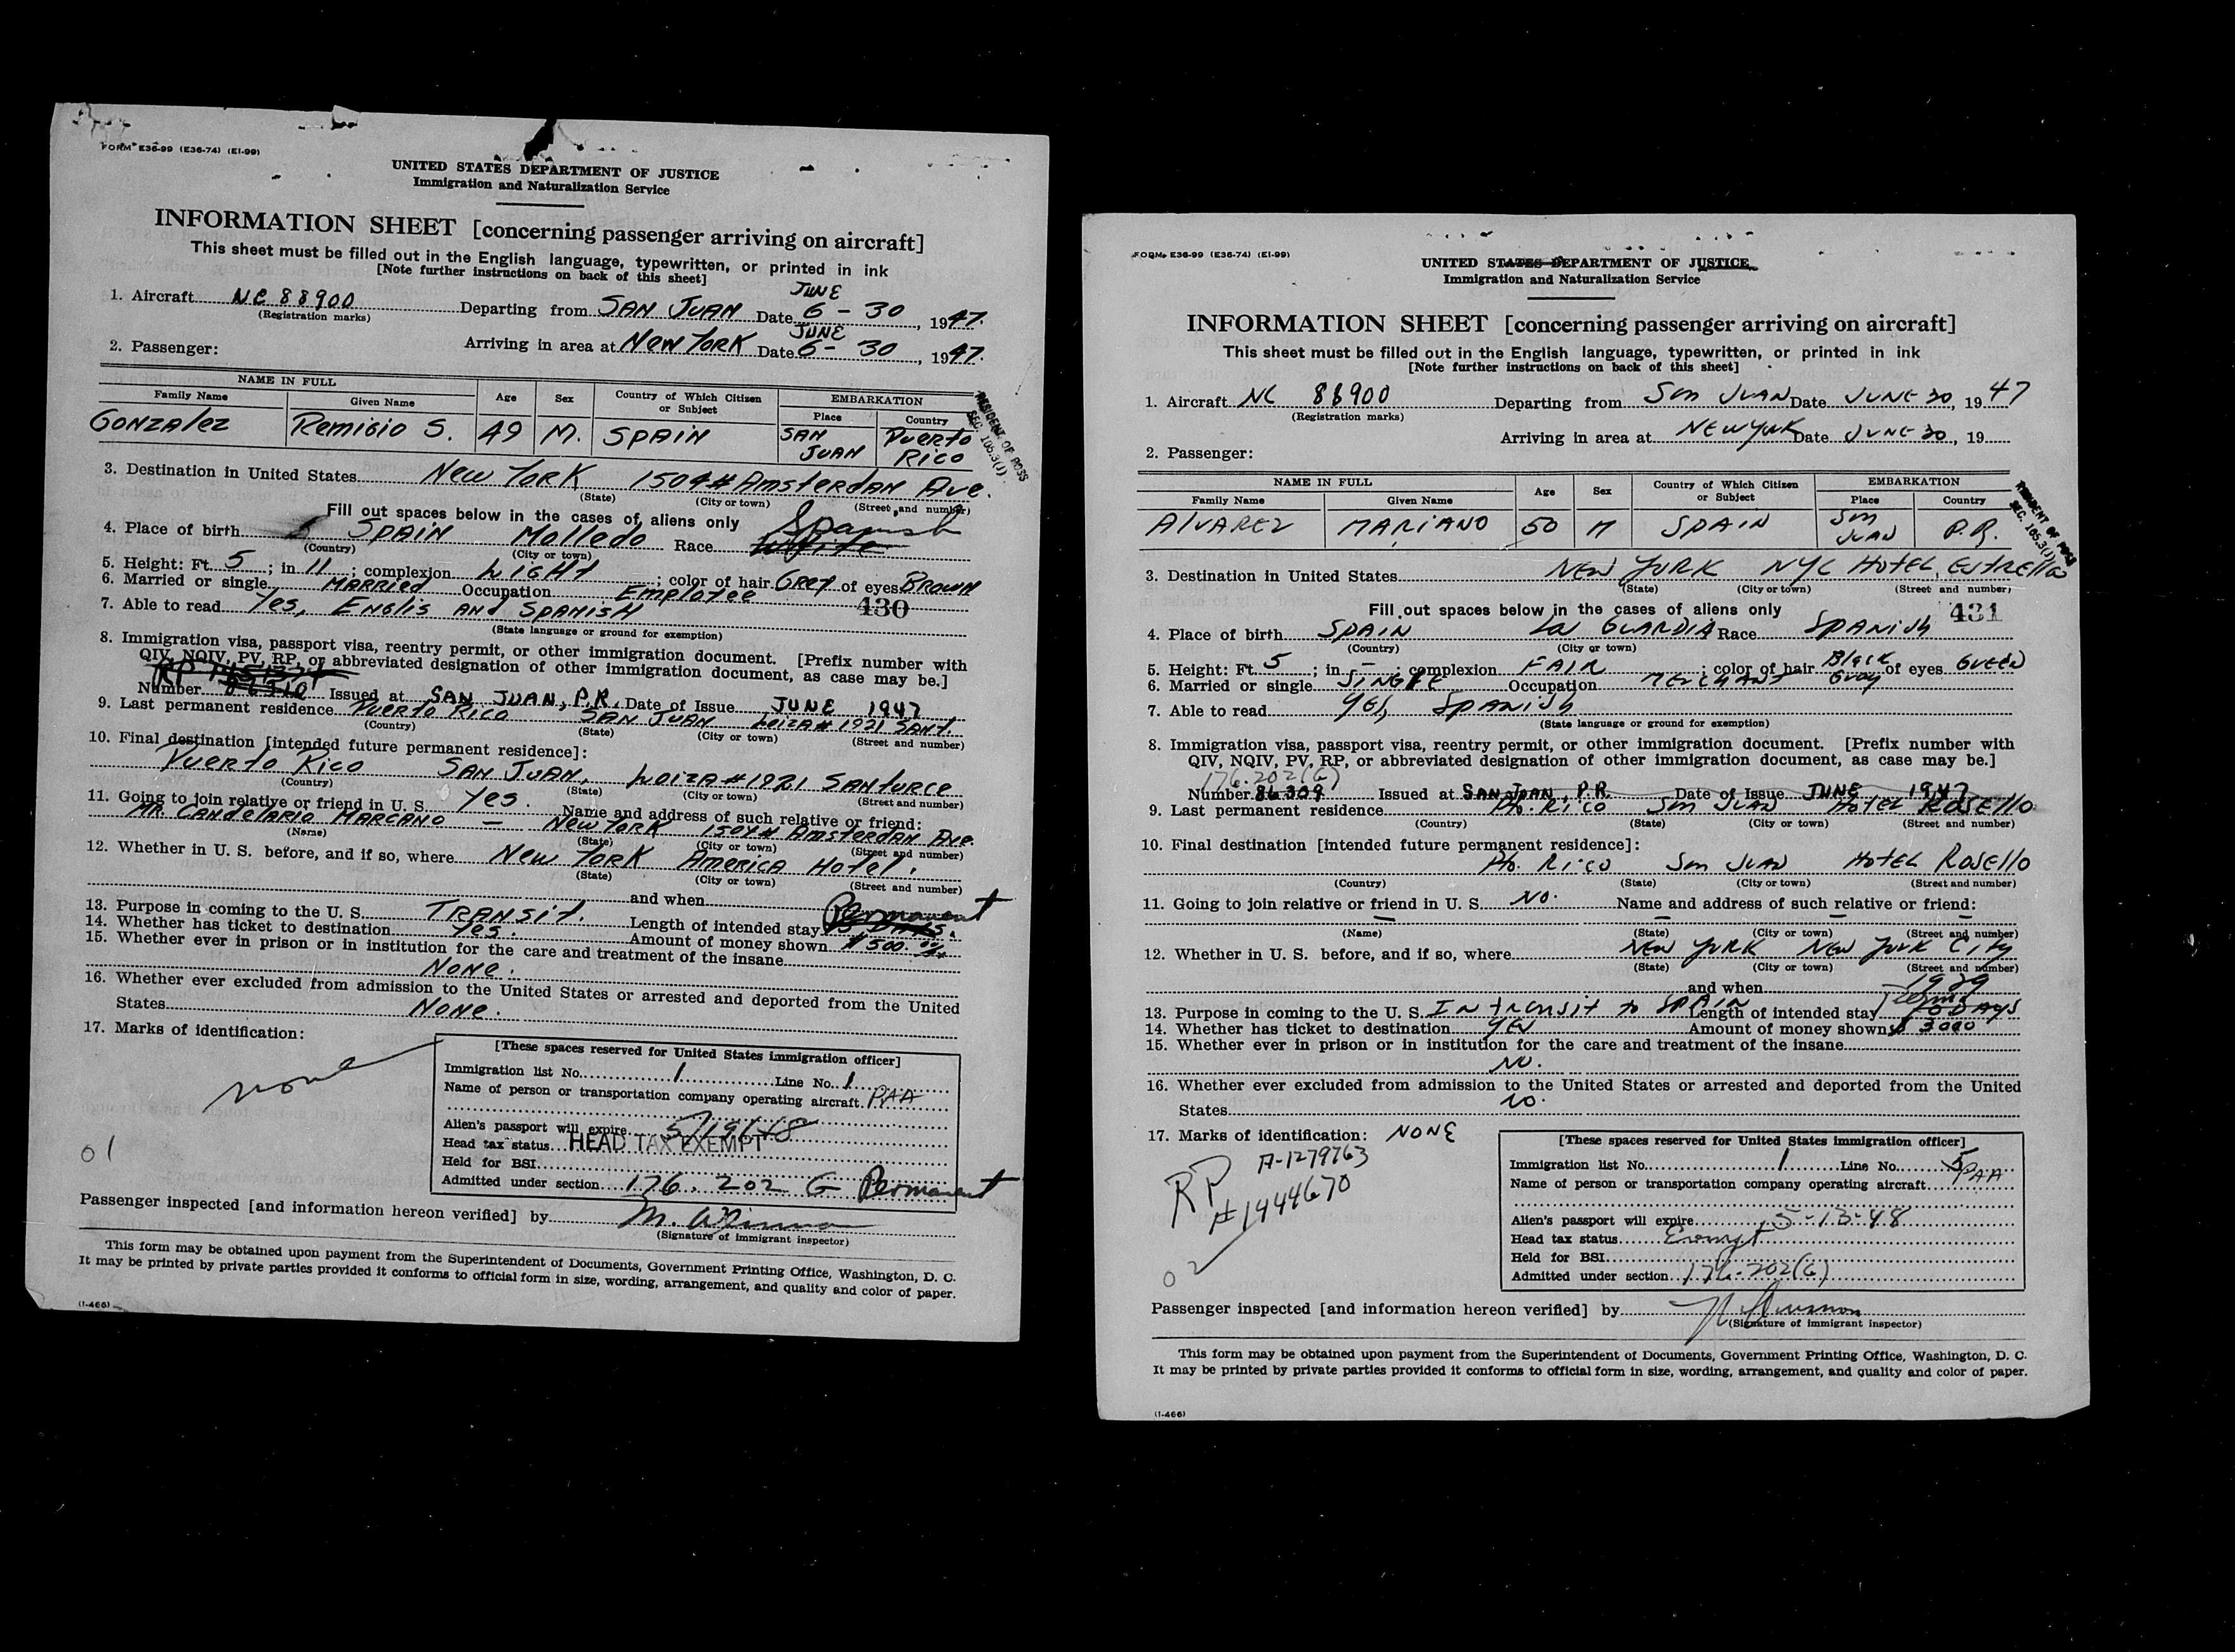 FORM E36-99 (E36-74) (EI-99)
UNITED STATES DEPARTMENT OF JUSTICE
Immigration and Naturalization Service
INFORMATION SHEET [concerning passenger arriving on aircraft]
This sheet must be filled out in the English language, typewritten, or printed in ink
[Note further instructions on back of this sheet]
JUNE
1. Aircraft NC 88900 Departing from SAN JUAN Date 6 - 30, 1947.
(Registration marks)
JUNE
2. Passenger: Arriving in area at New York Date 6- 30, 1947.
NAME IN FULL Age Sex Country of Which Citizen or Subject EMBARKATION
Family Name Given Name Place Country
Gonzalez Remigio S. 49 M. SPAIN SAN JUAN Puerto Rico
RESIDENT OF POSS
SEC. 105.3(1)
3. Destination in United States New York 1504# Amsterdan Ave.
(State) (City or town) (Street and number)
Fill out spaces below in the cases of aliens only
4. Place of birth SPAIN Molledo Race White Spanish
(Country) (City or town)
5. Height: Ft. 5; in 11; complexion LIGHt; color of hair Grey of eyes Brown
6. Married or single MARRied Occupation Employee
430
7. Able to read Yes, Englis And SPANISH
(State language or ground for exemption)
8. Immigration visa, passport visa, reentry permit, or other immigration document. [Prefix number with
QIV, NQIV, PV, RP, or abbreviated designation of other immigration document, as case may be.]
Number 86310 Issued at SAN JUAN, P.R. Date of Issue JUNE 1947
9. Last permanent residence Puerto Rico SAN JUAN Loiza # 1921 SANT.
(Country) (State) (City or town) (Street and number)
10. Final destination [intended future permanent residence]:
Puerto Rico SAN JUAN. Loiza #1921 SANturce
(Country) (State) (City or town) (Street and number)
11. Going to join relative or friend in U. S. Yes. Name and address of such relative or friend:
Mr. Candelario Marcano — New York 1504# Amsterdan Ave.
(Name) (State) (City or town) (Street and number)
12. Whether in U. S. before, and if so, where New York America Hotel.
(State) (City or town) (Street and number)
and when
13. Purpose in coming to the U. S. TRANSit. Length of intended stay Permanent
14. Whether has ticket to destination Yes. Amount of money shown $ 500.00
15. Whether ever in prison or in institution for the care and treatment of the insane
None.
16. Whether ever excluded from admission to the United States or arrested and deported from the United
States None.
17. Marks of identification:
none
01
[These spaces reserved for United States immigration officer]
Immigration list No. 1 Line No. 1
Name of person or transportation company operating aircraft PAA
Alien's passport will expire 5/19/48
Head tax status HEAD TAX EXEMPT
Held for BSI
Admitted under section 176.202 G Permanent
Passenger inspected [and information hereon verified] by
(Signature of immigrant inspector)
This form may be obtained upon payment from the Superintendent of Documents, Government Printing Office, Washington, D. C.
It may be printed by private parties provided it conforms to official form in size, wording, arrangement, and quality and color of paper.
(1-466)
FORM E36-99 (E36-74) (EI-99)
UNITED STATES DEPARTMENT OF JUSTICE
Immigration and Naturalization Service
INFORMATION SHEET [concerning passenger arriving on aircraft]
This sheet must be filled out in the English language, typewritten, or printed in ink
[Note further instructions on back of this sheet]
1. Aircraft NC 88900 Departing from San Juan Date JUNE 30, 1947
(Registration marks)
Arriving in area at NEW YORK Date JUNE 30, 19
2. Passenger:
NAME IN FULL Age Sex Country of Which Citizen or Subject EMBARKATION
Family Name Given Name Place Country
ALVAREZ MARIANO 50 M SPAIN San Juan P.R.
SEC. 105.3(1)
3. Destination in United States NEW YORK NYC HOTEL, ESTRELLA
(State) (City or town) (Street and number)
Fill out spaces below in the cases of aliens only 431
4. Place of birth SPAIN La GUARDIA Race SPANISH
(Country) (City or town)
5. Height: Ft. 5; in —; complexion FAIR; color of hair Black Gray of eyes Green
6. Married or single SINGLE Occupation MERCHANT
7. Able to read YES, SPANISH
(State language or ground for exemption)
8. Immigration visa, passport visa, reentry permit, or other immigration document. [Prefix number with
QIV, NQIV, PV, RP, or abbreviated designation of other immigration document, as case may be.]
176.202(G)
Number 86309 Issued at SAN JUAN, P.R. Date of Issue JUNE 1947
9. Last permanent residence Pto. Rico San Juan HOTEL ROSELLO
(Country) (State) (City or town) (Street and number)
10. Final destination [intended future permanent residence]:
Pto. Rico San Juan HOTEL Rosello
(Country) (State) (City or town) (Street and number)
11. Going to join relative or friend in U. S. NO. Name and address of such relative or friend:
(Name) (State) (City or town) (Street and number)
12. Whether in U. S. before, and if so, where NEW YORK NEW YORK City
(State) (City or town) (Street and number)
and when 1929
13. Purpose in coming to the U. S. In transit to SPAIN Length of intended stay DAYS
14. Whether has ticket to destination YES Amount of money shown $ 3000
15. Whether ever in prison or in institution for the care and treatment of the insane
NO.
16. Whether ever excluded from admission to the United States or arrested and deported from the United
States NO.
17. Marks of identification: NONE
A-1279763
RP #1444670
02
[These spaces reserved for United States immigration officer]
Immigration list No. 1 Line No. 5
Name of person or transportation company operating aircraft PAA
Alien's passport will expire 5-13-48
Head tax status Exempt
Held for BSI
Admitted under section 176.202(G)
Passenger inspected [and information hereon verified] by
(Signature of immigrant inspector)
This form may be obtained upon payment from the Superintendent of Documents, Government Printing Office, Washington, D. C.
It may be printed by private parties provided it conforms to official form in size, wording, arrangement, and quality and color of paper.
(1-466)